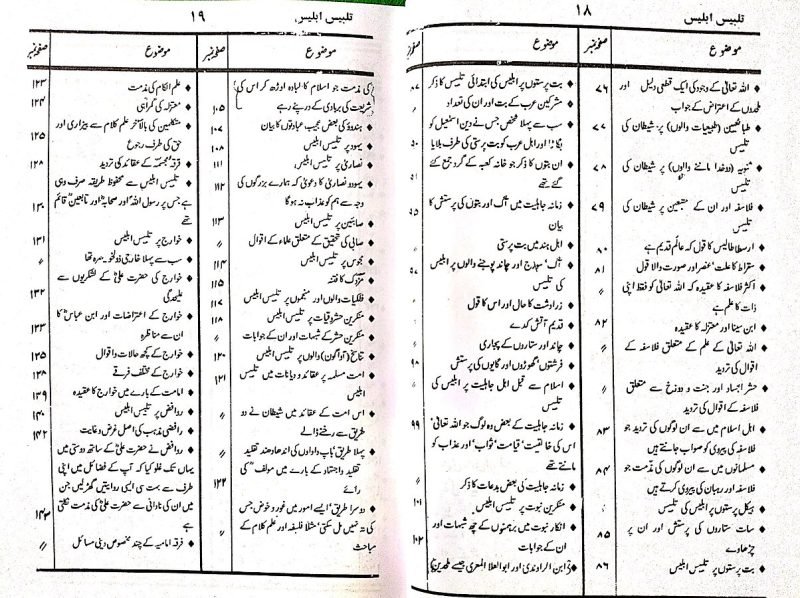 تلبیس ابلیس ۱۸
موضوع صفحہ نمبر
♦ اللہ تعالیٰ کے وجود کی ایک قطعی دلیل اور ۷۶
ملحدوں کے اعتراض کے جواب
♦ طبائعیین (طبیعیات والوں) پر شیطان کی ۷۷
تلبیس
♦ ثنویہ (دو خدا ماننے والوں) پر شیطان کی ۷۸
تلبیس
♦ فلاسفہ اور ان کے متبعین پر شیطان کی ۷۹
تلبیس
♦ ارسطاطالیس کا قول کہ عالم قدیم ہے ۸۰
♦ سقراط کا علت، عنصر اور صورت والا قول ۸۱
♦ اکثر فلاسفہ کا عقیدہ کہ اللہ تعالیٰ کو فقط اپنی //
ذات کا علم ہے
♦ ابن سینا اور معتزلہ کا عقیدہ ۸۲
♦ اللہ تعالیٰ کے علم کے متعلق فلاسفہ کے //
اقوال کی تردید
♦ حشر اجساد اور جنت و دوزخ سے متعلق //
فلاسفہ کے اقوال کی تردید
♦ اہل اسلام میں سے ان لوگوں کی تردید جو ۸۳
فلاسفہ کی پیروی کو صواب جانتے ہیں
♦ مسلمانوں میں سے ان لوگوں کی مذمت جو ۸۴
فلاسفہ اور رہبان کی پیروی کرتے ہیں
♦ ہیکل پرستوں پر ابلیس کی تلبیس //
♦ سات ستاروں کی پرستش اور ان پر ۸۵
چڑھاوے
♦ بت پرستوں پر تلبیس ابلیس ۸۶
موضوع
♦ بت پرستوں پر ابلیس کی ابتدائی تلبیس کا ذکر ۸۷
♦ مشرکین عرب کے بت اور ان کی تعداد //
♦ سب سے پہلا شخص جس نے دین اسمٰعیل کو
بگاڑا اور اہل عرب کو بت پرستی کی طرف بلایا ۹۰
♦ ان بتوں کا ذکر جو خانہ کعبہ کے گرد جمع کئے
گئے تھے
♦ زمانہ جاہلیت میں آگ اور بتوں کی پرستش کا ۹۵
بیان
♦ اہل ہند میں بت پرستی //
♦ آگ، سورج اور چاند پوجنے والوں پر ابلیس ۹۷
کی تلبیس
♦ زرادشت کا حال اور اس کا قول //
♦ قدیم آتش کدے //
♦ چاند اور ستاروں کے پجاری //
♦ فرشتوں، گھوڑوں اور گایوں کی پرستش ۹۸
♦ اسلام سے قبل اہل جاہلیت پر ابلیس کی //
تلبیس
♦ زمانہ جاہلیت کے بعض وہ لوگ جو اللہ تعالیٰ، ۹۹
اس کی خالقیت، قیامت، ثواب، اور عذاب کو
مانتے تھے
♦ زمانہ جاہلیت کی بعض بدعات کا ذکر //
♦ منکرین نبوت پر تلبیس ابلیس ۱۰۱
♦ انکار نبوت میں برہمنوں کے چھ شبہات اور ۱۰۲
ان کے جوابات
♦ (ابن الراوندی اور ابوالعلا المعری جیسے ملحدین)
تلبیس ابلیس ۱۹
موضوع صفحہ نمبر
کی مذمت جو اسلام کا لبادہ اوڑھ کر اس کی
شریعت کی بربادی کے درپے رہے ۱۰۵
♦ ہندوؤ کی بعض عجیب عبادتوں کا بیان ۱۰۷
♦ یہود پر تلبیس ابلیس ۱۰۸
♦ نصاریٰ پر تلبیس ابلیس ۱۱۱
♦ یہود و نصاریٰ کا دعویٰ کہ ہمارے بزرگوں کی ۱۱۲
وجہ سے ہم کو عذاب نہ ہو گا
♦ صابئین پر تلبیس ابلیس ۱۱۳
♦ صابی کی تحقیق کے متعلق علماء کے اقوال //
♦ مجوس پر تلبیس ابلیس ۱۱۴
♦ مزدک کا فتنہ ۱۱۵
♦ فلکیات والوں اور منجموں پر تلبیس ابلیس ۱۱۷
♦ منکرین حشر و قیامت پر تلبیس ابلیس ۱۱۸
♦ منکرین حشر کے شبہات اور ان کے جوابات //
♦ تناسخ (آواگون) والوں پر تلبیس ابلیس ۱۲۰
♦ امت مسلمہ پر عقائد و دیانات میں تلبیس ۱۲۱
ابلیس
♦ اس امت کے عقائد میں شیطان نے دو //
طریق سے رخنے ڈالے
♦ پہلا طریق، باپ داداوں کی اندھا دھند تقلید //
تقلید و اجتہاد کے بارے میں مولف کی ۱۲۲
رائے
♦ دوسرا طریق، ایسے امور میں غور و خوض جس //
کی تہ نہیں مل سکتی، مثلاً فلسفہ اور علم کلام کے
مباحث
موضوع صفحہ نمبر
♦ علم الکلام کی مذمت ۱۲۳
♦ معتزلہ کی گمراہی ۱۲۴
♦ متکلمین کی بالآخر علم کلام سے بیزاری اور ۱۲۵
حق کی طرف رجوع
♦ فرقہ مجسمہ کے عقائد کی تردید ۱۲۸
♦ تلبیس ابلیس سے محفوظ طریقہ صرف وہی
ہے جس پر رسول اللہؐ اور صحابہؓ اور تابعینؒ قائم ۱۳۰
تھے
♦ خوارج پر تلبیس ابلیس ۱۳۱
♦ سب سے پہلا خارجی ذوالخویصرہ تھا //
♦ خوارج کی حضرت علیؓ کے لشکریوں سے ۱۳۲
علیحدگی
♦ خوارج کے اعتراضات اور ابن عباسؓ کا ۱۳۳
ان سے مناظرہ
♦ خوارج کے کچھ حالات و اقوال ۱۳۵
♦ خوارج کے مختلف فرقے ۱۳۸
♦ امامت کے بارے میں خوارج کا عقیدہ ۱۳۹
♦ روافض پر تلبیس ابلیس ۱۴۰
♦ رافضی مذہب کی اصل غرض و غایت ۱۴۲
♦ روافض نے حضرت علیؓ کے ساتھ دوستی میں
یہاں تک غلو کیا کہ آپ کے فضائل میں اپنی
طرف سے بہت سی ایسی روایتیں گھڑ لیں جن
میں ان کی نادانی سے حضرت علیؓ کی مذمت نکلتی ۱۴۳
ہے
♦ فرقہ امامیہ کے چند مخصوص دینی مسائل //